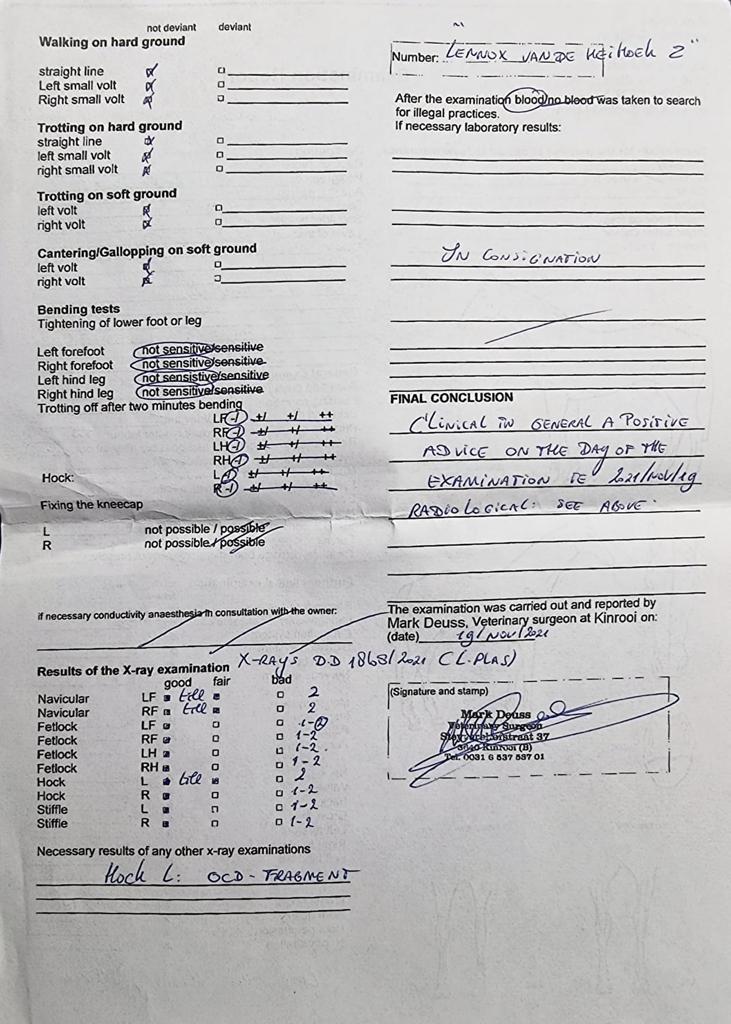 not deviant deviant
Walking on hard ground
straight line
Left small volt
Right small volt
Trotting on hard ground
straight line
left small volt
right small volt
Trotting on soft ground
left volt
right volt
Cantering/Gallopping on soft ground
left volt
right volt
Bending tests
Tightening of lower foot or leg
Left forefoot not sensitive/sensitive
Right forefoot not sensitive/sensitive
Left hind leg not sensistive/sensitive
Right hind leg not sensitive/sensitive
Trotting off after two minutes bending
LF -/ +/ +/ ++
RF -/ +/ +/ ++
LH -/ +/ +/ ++
RH -/ +/ +/ ++
Hock: L -/ +/ +/ ++
R -/ +/ +/ ++
Fixing the kneecap
L not possible / possible
R not possible / possible
if necessary conductivity anaesthesia in consultation with the owner:
Results of the X-ray examination X-RAYS D.D 18/63/2021 (L. PLAS)
good fair bad
Navicular LF till 2
Navicular RF till 2
Fetlock LF 1-2
Fetlock RF 1-2
Fetlock LH 1-2
Fetlock RH 1-2
Hock L till 2
Hock R 1-2
Stiffle L 1-2
Stiffle R 1-2
Necessary results of any other x-ray examinations
Hock L: OCD-FRAGMENT
Number: LENNOX VAN DE HEIHOEK Z"
After the examination blood/no blood was taken to search
for illegal practices.
If necessary laboratory results:
IN CONSIGNATION
FINAL CONCLUSION
CLINICAL IN GENERAL A POSITIVE
ADVICE ON THE DAY OF THE
EXAMINATION IE 2021/NOV/19
RADIOLOGICAL: SEE ABOVE.
The examination was carried out and reported by
Mark Deuss, Veterinary surgeon at Kinrooi on:
(date) 19/NOV/2021
(Signature and stamp)
Mark Deuss
Veterinary Surgeon
37
3640 Kinrooi (B)
Tel. 0031 6 537 537 01